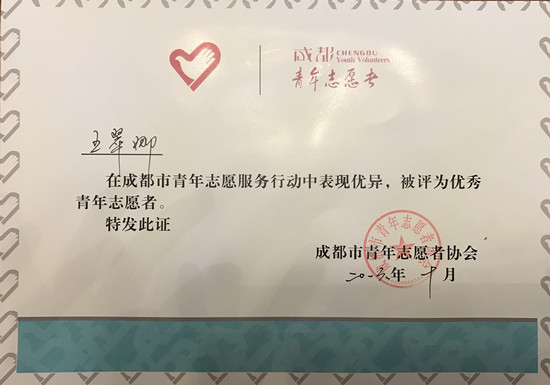 成都 CHENGDU
Youth Volunteers
青年志愿者
王翠娜
在成都市青年志愿服务行动中表现优异，被评为优秀
青年志愿者。
特发此证
成都市青年志愿者协会
年十月
成都市青年志愿者协会